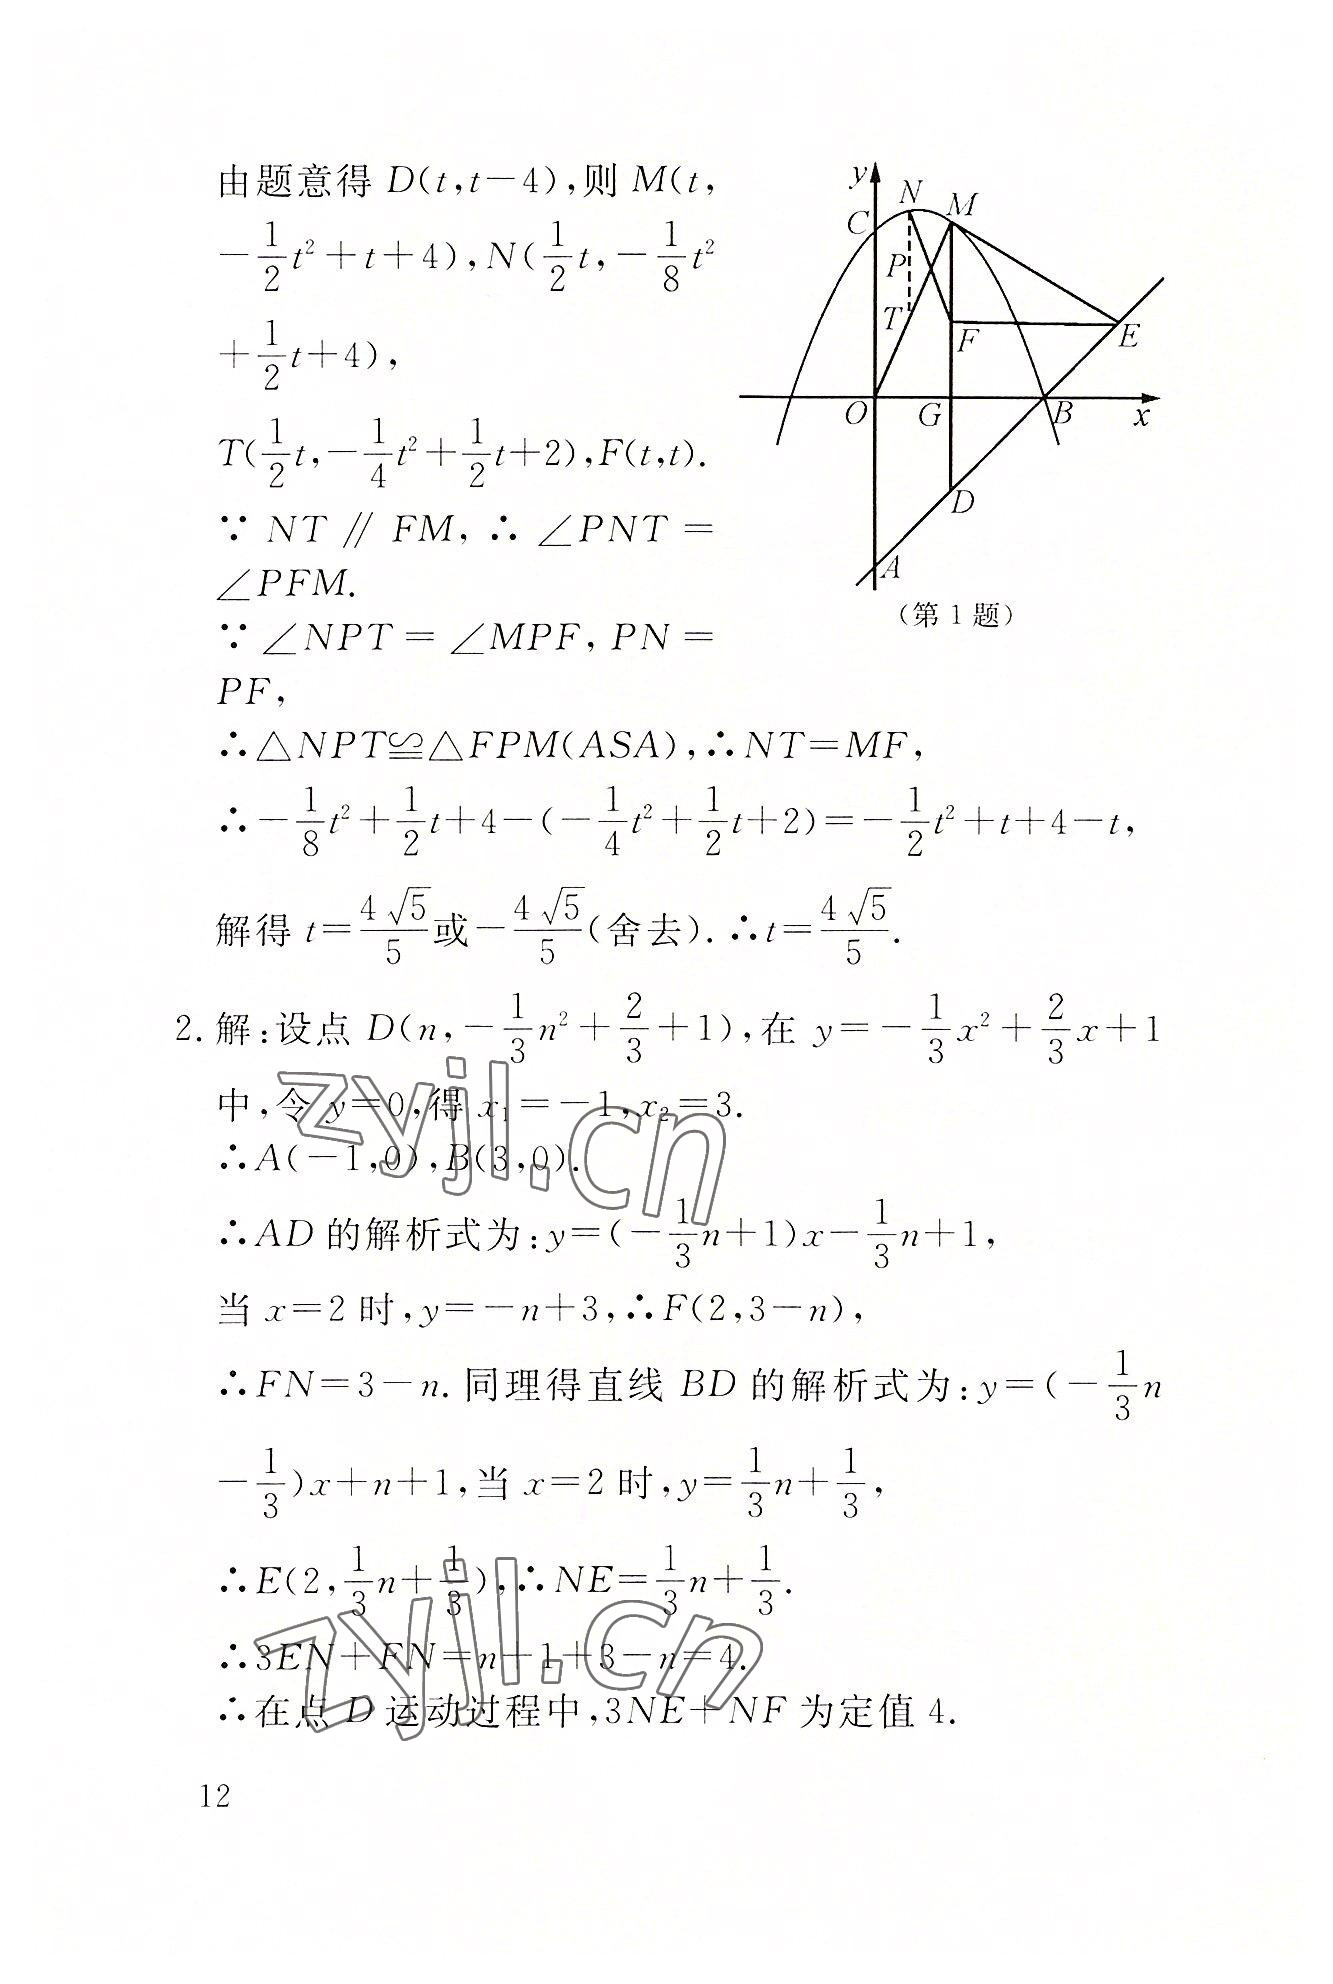 由题意得 D(t,t-4),则 M(t,
-\frac{1}{2}t²+t+4),N(\frac{1}{2}t,-\frac{1}{8}t²
+\frac{1}{2}t+4),
T(\frac{1}{2}t,-\frac{1}{4}t²+\frac{1}{2}t+2),F(t,t).
∵ NT // FM, ∴ ∠PNT =
∠PFM.
∵ ∠NPT = ∠MPF, PN =
PF,
y
N
M
C
P
T
F
E
O
G
B
x
D
A
(第 1 题)
∴△NPT≌△FPM(ASA),∴NT=MF,
∴-\frac{1}{8}t²+\frac{1}{2}t+4-(-\frac{1}{4}t²+\frac{1}{2}t+2)=-\frac{1}{2}t²+t+4-t,
解得 t=\frac{4\sqrt{5}}{5}或-\frac{4\sqrt{5}}{5}(舍去).∴t=\frac{4\sqrt{5}}{5}.
2. 解:设点 D(n,-\frac{1}{3}n²+\frac{2}{3}+1),在 y=-\frac{1}{3}x²+\frac{2}{3}x+1
中,令 y=0,得 x₁=-1,x₂=3.
∴A(-1,0),B(3,0).
∴AD 的解析式为:y=(-\frac{1}{3}n+1)x-\frac{1}{3}n+1,
当 x=2 时,y=-n+3,∴F(2,3-n),
∴FN=3-n. 同理得直线 BD 的解析式为:y=(-\frac{1}{3}n
-\frac{1}{3})x+n+1,当 x=2 时,y=\frac{1}{3}n+\frac{1}{3},
∴E(2,\frac{1}{3}n+\frac{1}{3}),∴NE=\frac{1}{3}n+\frac{1}{3}.
∴3EN+FN=n+1+3-n=4.
∴在点 D 运动过程中,3NE+NF 为定值 4.
12
zyjl.cn
zyjl.cn